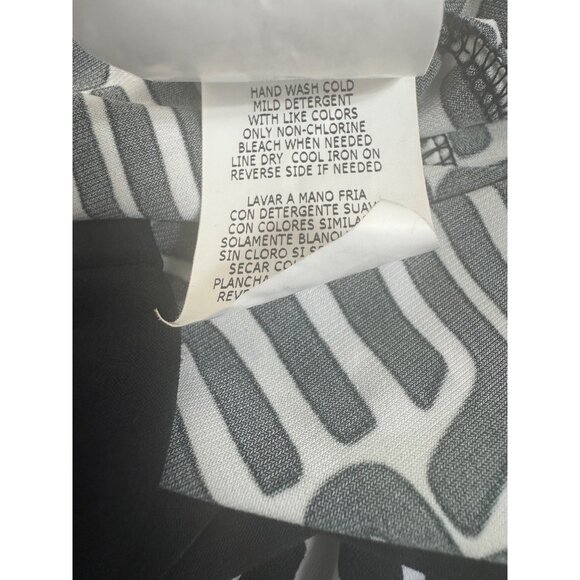 HAND WASH COLD
MILD DETERGENT
WITH LIKE COLORS
ONLY NON-CHLORINE
BLEACH WHEN NEEDED
LINE DRY COOL IRON ON
REVERSE SIDE IF NEEDED
LAVAR A MANO FRIA
CON DETERGENTE SUAV
CON COLORES SIMILA
SOLAMENTE BLANQU
SIN CLORO SI S
SECAR CO
PLANCHA
REV